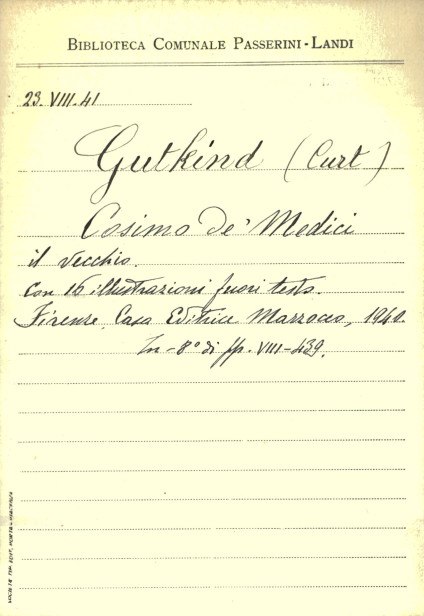 BIBLIOTECA COMUNALE PASSERINI-LANDI
23. VIII. 41
Gutkind (Curt)
Cosimo De' Medici
il Vecchio.
Con 16 illustrazioni fuori testo.
Firenze, Casa Editrice Marzocco, 1940.
In-8° di pp. VIII-439.